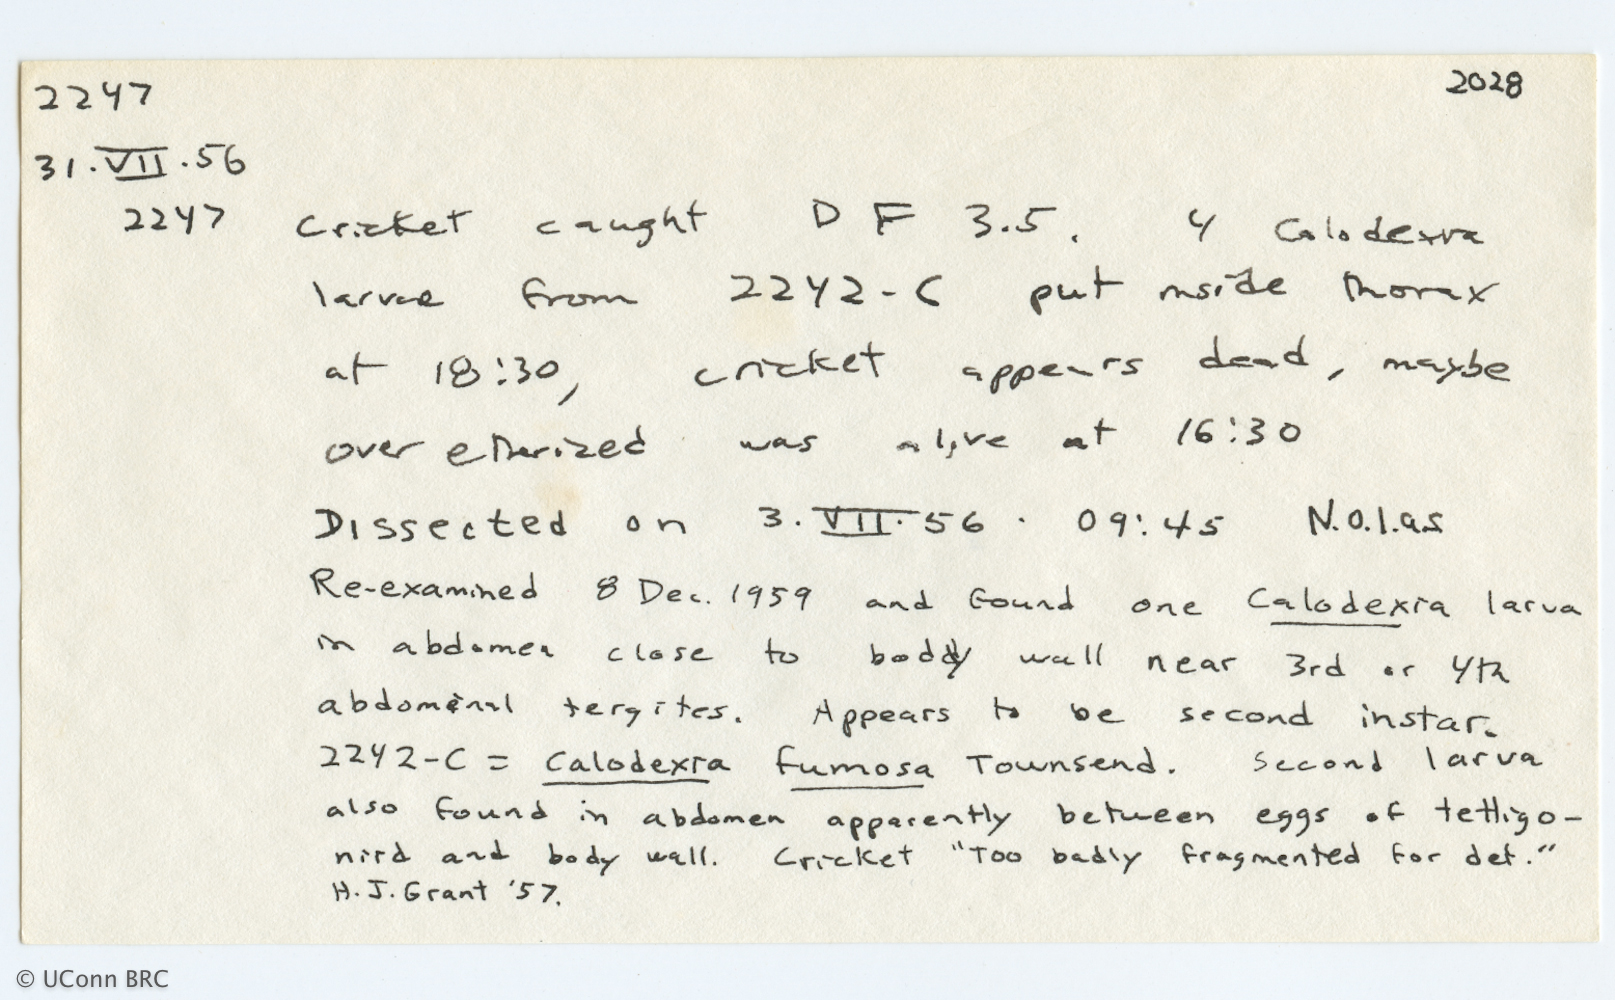 2247
2028
31.VII.56
2247 Cricket caught D F 3.5. 4 Calodexra
larvae from 2242-C put inside thorax
at 18:30, cricket appears dead, maybe
over etherized was alive at 16:30
Dissected on 3.VII.56. 09:45 N.O.l.as
Re-examined 8 Dec. 1959 and found one Calodexra larva
in abdomen close to boddy wall near 3rd or 4th
abdominal tergites. Appears to be second instar.
2242-C = Calodexra fumosa Townsend. Second larva
also found in abdomen apparently between eggs of tettigo-
niid and body wall. Cricket "Too badly fragmented for det."
H.J. Grant '57.
© UConn BRC